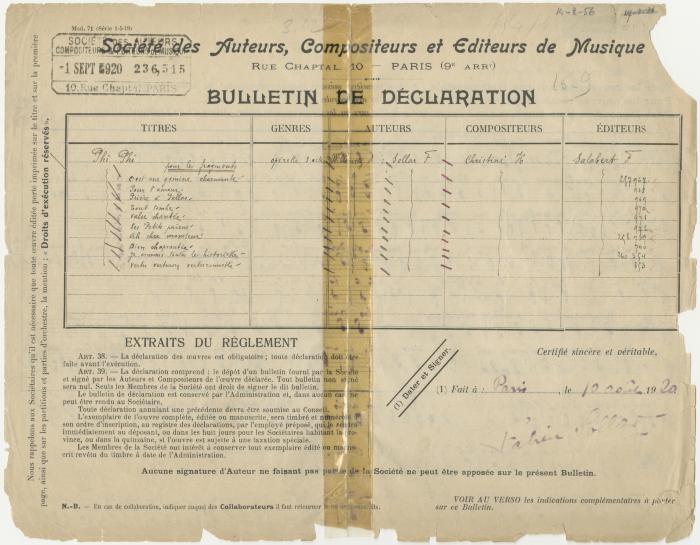 Mod. 71 (Série 1-5-19)
14-2-56
SOCIÉTÉ DES AUTEURS
COMPOSITEURS & ÉDITEURS DE MUSIQUE
-1 SEPT 1920 236,515
10, Rue Chaptal, PARIS
Société des Auteurs, Compositeurs et Editeurs de Musique
RUE CHAPTAL 10 — PARIS (9e ARRt)
1629
BULLETIN DE DÉCLARATION
TITRES GENRES AUTEURS COMPOSITEURS ÉDITEURS
Phi Phi opérette 3 actes Willemetz A. Sollar F Christiné H Salabert F
pour les fragments
C'est une gamine charmante 257 967
Pour l'amour 968
Prière à Pallas 969
Tout tombe 970
Valse chantée 971
Les Petits païens 972
Ah cher monsieur 258 739
Bien chapeautée 740
Je connais toutes les historiettes 260 354
Vertu verturon verturonnette 353
EXTRAITS DU RÈGLEMENT
ART. 38. — La déclaration des œuvres est obligatoire ; toute déclaration doit être
faite avant l'exécution.
ART. 39. — La déclaration comprend : le dépôt d'un bulletin fourni par la Société
et signé par les Auteurs et Compositeurs de l'œuvre déclarée. Tout bulletin non signé
sera nul. Seuls les Membres de la Société ont droit de signer le dit bulletin.
Le bulletin de déclaration est conservé par l'Administration et, dans aucun cas ne
peut être rendu au Sociétaire.
Toute déclaration annulant une précédente devra être soumise au Conseil.
L'exemplaire de l'œuvre complète, éditée ou manuscrite, sera timbré et numéroté
son ordre d'inscription, au registre des déclarations, par l'employé préposé, qui le remettra
immédiatement au déposant, ou dans les huit jours pour les Sociétaires habitant la pro-
vince, ou dans la quinzaine, si l'œuvre est sujette à une taxation spéciale.
Les Membres de la Société ont intérêt à conserver tout exemplaire édité ou manus-
crit revêtu du timbre à date de l'Administration.
Certifié sincère et véritable,
(1) Dater et Signer.
(1) Fait à : Paris, le 10 août 1920
Aucune signature d'Auteur ne faisant pas partie de la Société ne peut être apposée sur le présent Bulletin.
N.-B. — En cas de collaboration, indiquer auquel des Collaborateurs il faut retourner
VOIR AU VERSO les indications complémentaires à porter
sur ce Bulletin.
Nous rappelons aux Sociétaires qu'il est nécessaire que toute œuvre éditée porte imprimée sur le titre et sur la première
page, ainsi que sur les partitions et parties d'orchestre, la mention : « Droits d'exécution réservés ».